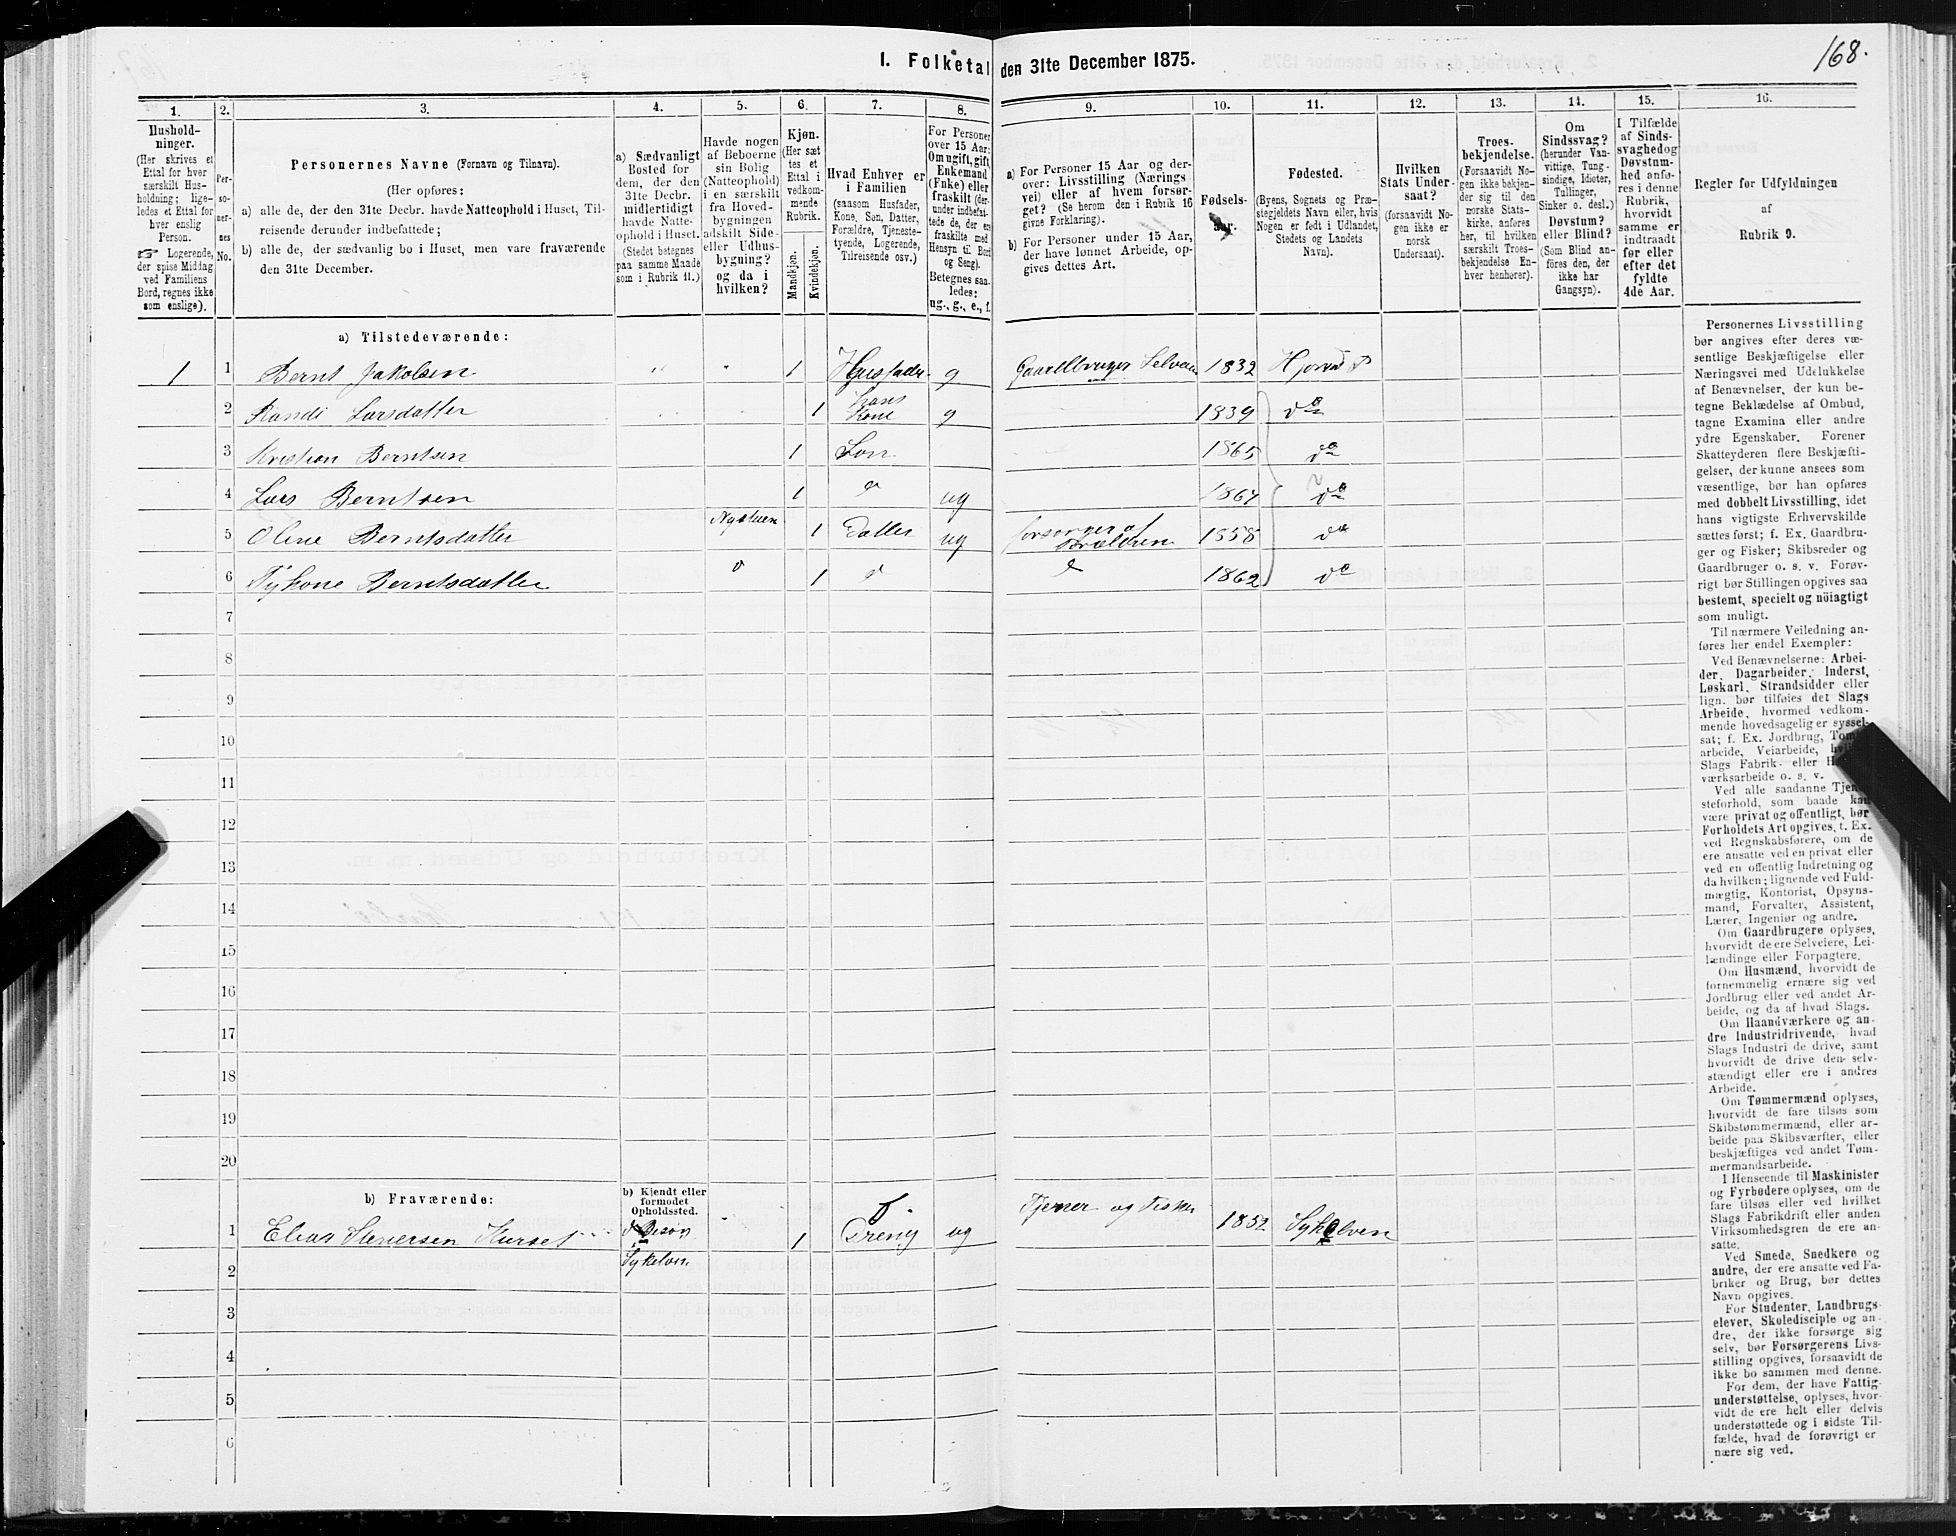 168.
I. Folketal den 31te December 1875.
1. 2. 3. 4. 5. 6. 7. 8. 9. 10. 11. 12. 13. 14. 15. 16.
Hushold-
ninger.
(Her skrives et
Ettal for hver
særskilt Hus-
holdning; lige-
ledes et Ettal for
hver enslig
Person.
☞ Logerende,
der spise Middag
ved Familiens
Bord, regnes ikke
som enslige).
Per-
so-
ner-
nes
No.
Personernes Navne (Fornavn og Tilnavn).
(Her opføres:
a) alle de, der den 31te Decbr. havde Natteophold i Huset, Til-
reisende derunder indbefattede;
b) alle de, der sædvanlig bo i Huset, men vare fraværende
den 31te December.
a) Sædvanligt
Bosted for
dem, der den
31te Decbr.
midlertidigt
havde Natte-
ophold i Huset.
(Stedet betegnes
paa samme Maade
som i Rubrik 11.)
Havde nogen
af Beboerne
sin Bolig
(Natteophold)
i en særskilt
fra Hoved-
bygningen
adskilt Side-
eller Udhus-
bygning?
og da i
hvilken?
Kjøn.
(Her sæt
tes et
Ettal i
vedkom-
mende
Rubrik.
Mandkjøn.
Kvindekjøn.
Hvad Enhver er
i Familien
(saasom Husfader,
Kone, Søn, Datter,
Forældre, Tjeneste-
tyende, Logerende,
Tilreisende osv.)
For Personer
over 15 Aar:
Om ugift, gift,
Enkemand
(Enke) eller
fraskilt (der-
under indbefat-
tede de, der ere
fraskilte med
Hensyn til Bord
og Seng).
Betegnes saa-
ledes:
ug., g., e., f.
a) For Personer 15 Aar og der-
over: Livsstilling (Nærings-
vei) eller af hvem forsør-
get? (Se herom den i Rubrik 16
givne Forklaring).
b) For Personer under 15 Aar,
der have lønnet Arbeide, op-
gives dettes Art.
Fødsels-
aar.
Fødested.
(Byens, Sognets og Præ-
stegjeldets Navn eller, hvis
Nogen er født i Udlandet,
Stedets og Landets
Navn).
Hvilken
Stats Under-
saat?
(forsaavidt No-
gen ikke er
norsk
Undersaat).
Troes-
bekjendelse.
(Forsaavidt No-
gen ikke bekjen-
der sig til den
norske Stats-
kirke, anføres
her, til hvilken
særskilt Troes-
bekjendelse En-
hver henhører).
Om
Sindssvag?
(herunder Van-
vittige, Tung-
sindige, Idioter,
Tullinger,
Sinker o. desl.)
Døvstum?
eller Blind?
(Som Blind an-
føres den, der
ikke har
Gangsyn).
I Tilfælde
af Sinds-
svaghedog
Døvstum-
hed anfø-
res i denne
Rubrik,
hvorvidt
samme er
indtraadt
før eller
efter det
fyldte
4de Aar.
Regler for Udfyldningen
af
Rubrik 9.
a) Tilstedeværende:
1 1 Bernt Jakobsen 1 Husfader g Gaardbruger Selveier 1832
2 Randi Larsdatter 1 hans Kone g 1839 do
3 Kristian Berntsen 1 Søn 1865 do
4 Lars Berntsen 1 do ug do
5 Oline Berntsdatter 1 Datter ug forsørges af Forældren 1858 do
6 Berntsdatter 1 do 1862 do
7
8
9
10
11
12
13
14
15
16
17
18
19
20
b) Fraværende:
b) Kjendt eller
formodet
Opholdssted.
1 Elias 1 Dreng ug Tjener og Fisker 1852 Sykelven
Sykelven
2
3
4
5
6
Personernes Livsstilling
bør angives efter deres væ-
sentlige Beskjæftigelse eller
Næringsvei med Udelukkelse
af Benævnelser, der kun be-
tegne Beklædelse af Ombud,
tagne Examina eller andre
ydre Egenskaber. Forener
Skatteyderen flere Beskjæfti-
gelser, der kunne ansees som
væsentlige, bør han opføres
med dobbelt Livsstilling, idet
hans vigtigste Erhvervskilde
sættes først; f. Ex. Gaardbru-
ger og Fisker; Skibsreder og
Gaardbruger o. s. v. Forøv-
rigt bør Stillingen opgives saa
bestemt, specielt og nöiagtigt
som muligt.
Til nærmere Veiledning an-
føres her endel Exempler:
Ved Benævnelserne: Arbei-
der, Dagarbeider, Inderst,
Løskarl, Strandsidder eller
lign. bør tilføies det Slags
Arbeide, hvormed vedkom-
mende hovedsagelig er syssel-
sat; f. Ex. Jordbrug,
arbeide, Veiarbeide,
Slags Fabrik- eller
værksarbeide o. s. v.
Ved alle saadanne Tjene-
steforhold, som baade kan
være privat og offentligt, bør
Forholdets Art opgives, t. Ex.
ved Regnskabsførere, om de
ere ansatte ved en privat eller
ved en offentlig Indretning og
da hvilken; lignende ved Fuld-
mægtig, Kontorist, Opsyns-
mand, Forvalter, Assistent,
Lærer, Ingeniør og andre.
Om Gaardbrugere oplyses,
hvorvidt de ere Selveiere, Lei-
lændinge eller Forpagtere.
Om Husmænd, hvorvidt de
fornemmelig ernære sig ved
Jordbrug eller ved andet Ar-
beide, og da af hvad Slags.
Om Haandværkere og an-
dre Industridrivende, hvad
Slags Industri de drive, samt
hvorvidt de drive den selv-
stændigt eller ere i andres
Arbeide.
Om Tømmermænd oplyses,
hvorvidt de fare tilsøs som
Skibstømmermænd, eller ar-
beide paa Skibsværfter, eller
beskjæftiges ved andet Tøm-
mermandsarbeide.
I Henseende til Maskinister
og Fyrbødere oplyses, om de
fare tilsøs eller ved hvilket
Slags Fabrikdrift eller anden
Virksomhedsgren de ere an-
satte.
Ved Smede, Snedkere og
andre, der ere ansatte ved Fa-
briker og Brug, bør dettes
Navn opgives.
For Studenter, Landbrugs-
elever, Skoledisciple og an-
dre, der ikke forsørge sig
selv, bør Forsørgerens Livs-
stilling opgives, forsaavidt de
ikke bo sammen med denne.
For dem, der have Fattig-
understøttelse, oplyses, hvor-
vidt de ere helt eller delvis
understøttede og i sidste Til-
fælde, hvad de forøvrigt er
nære sig ved.